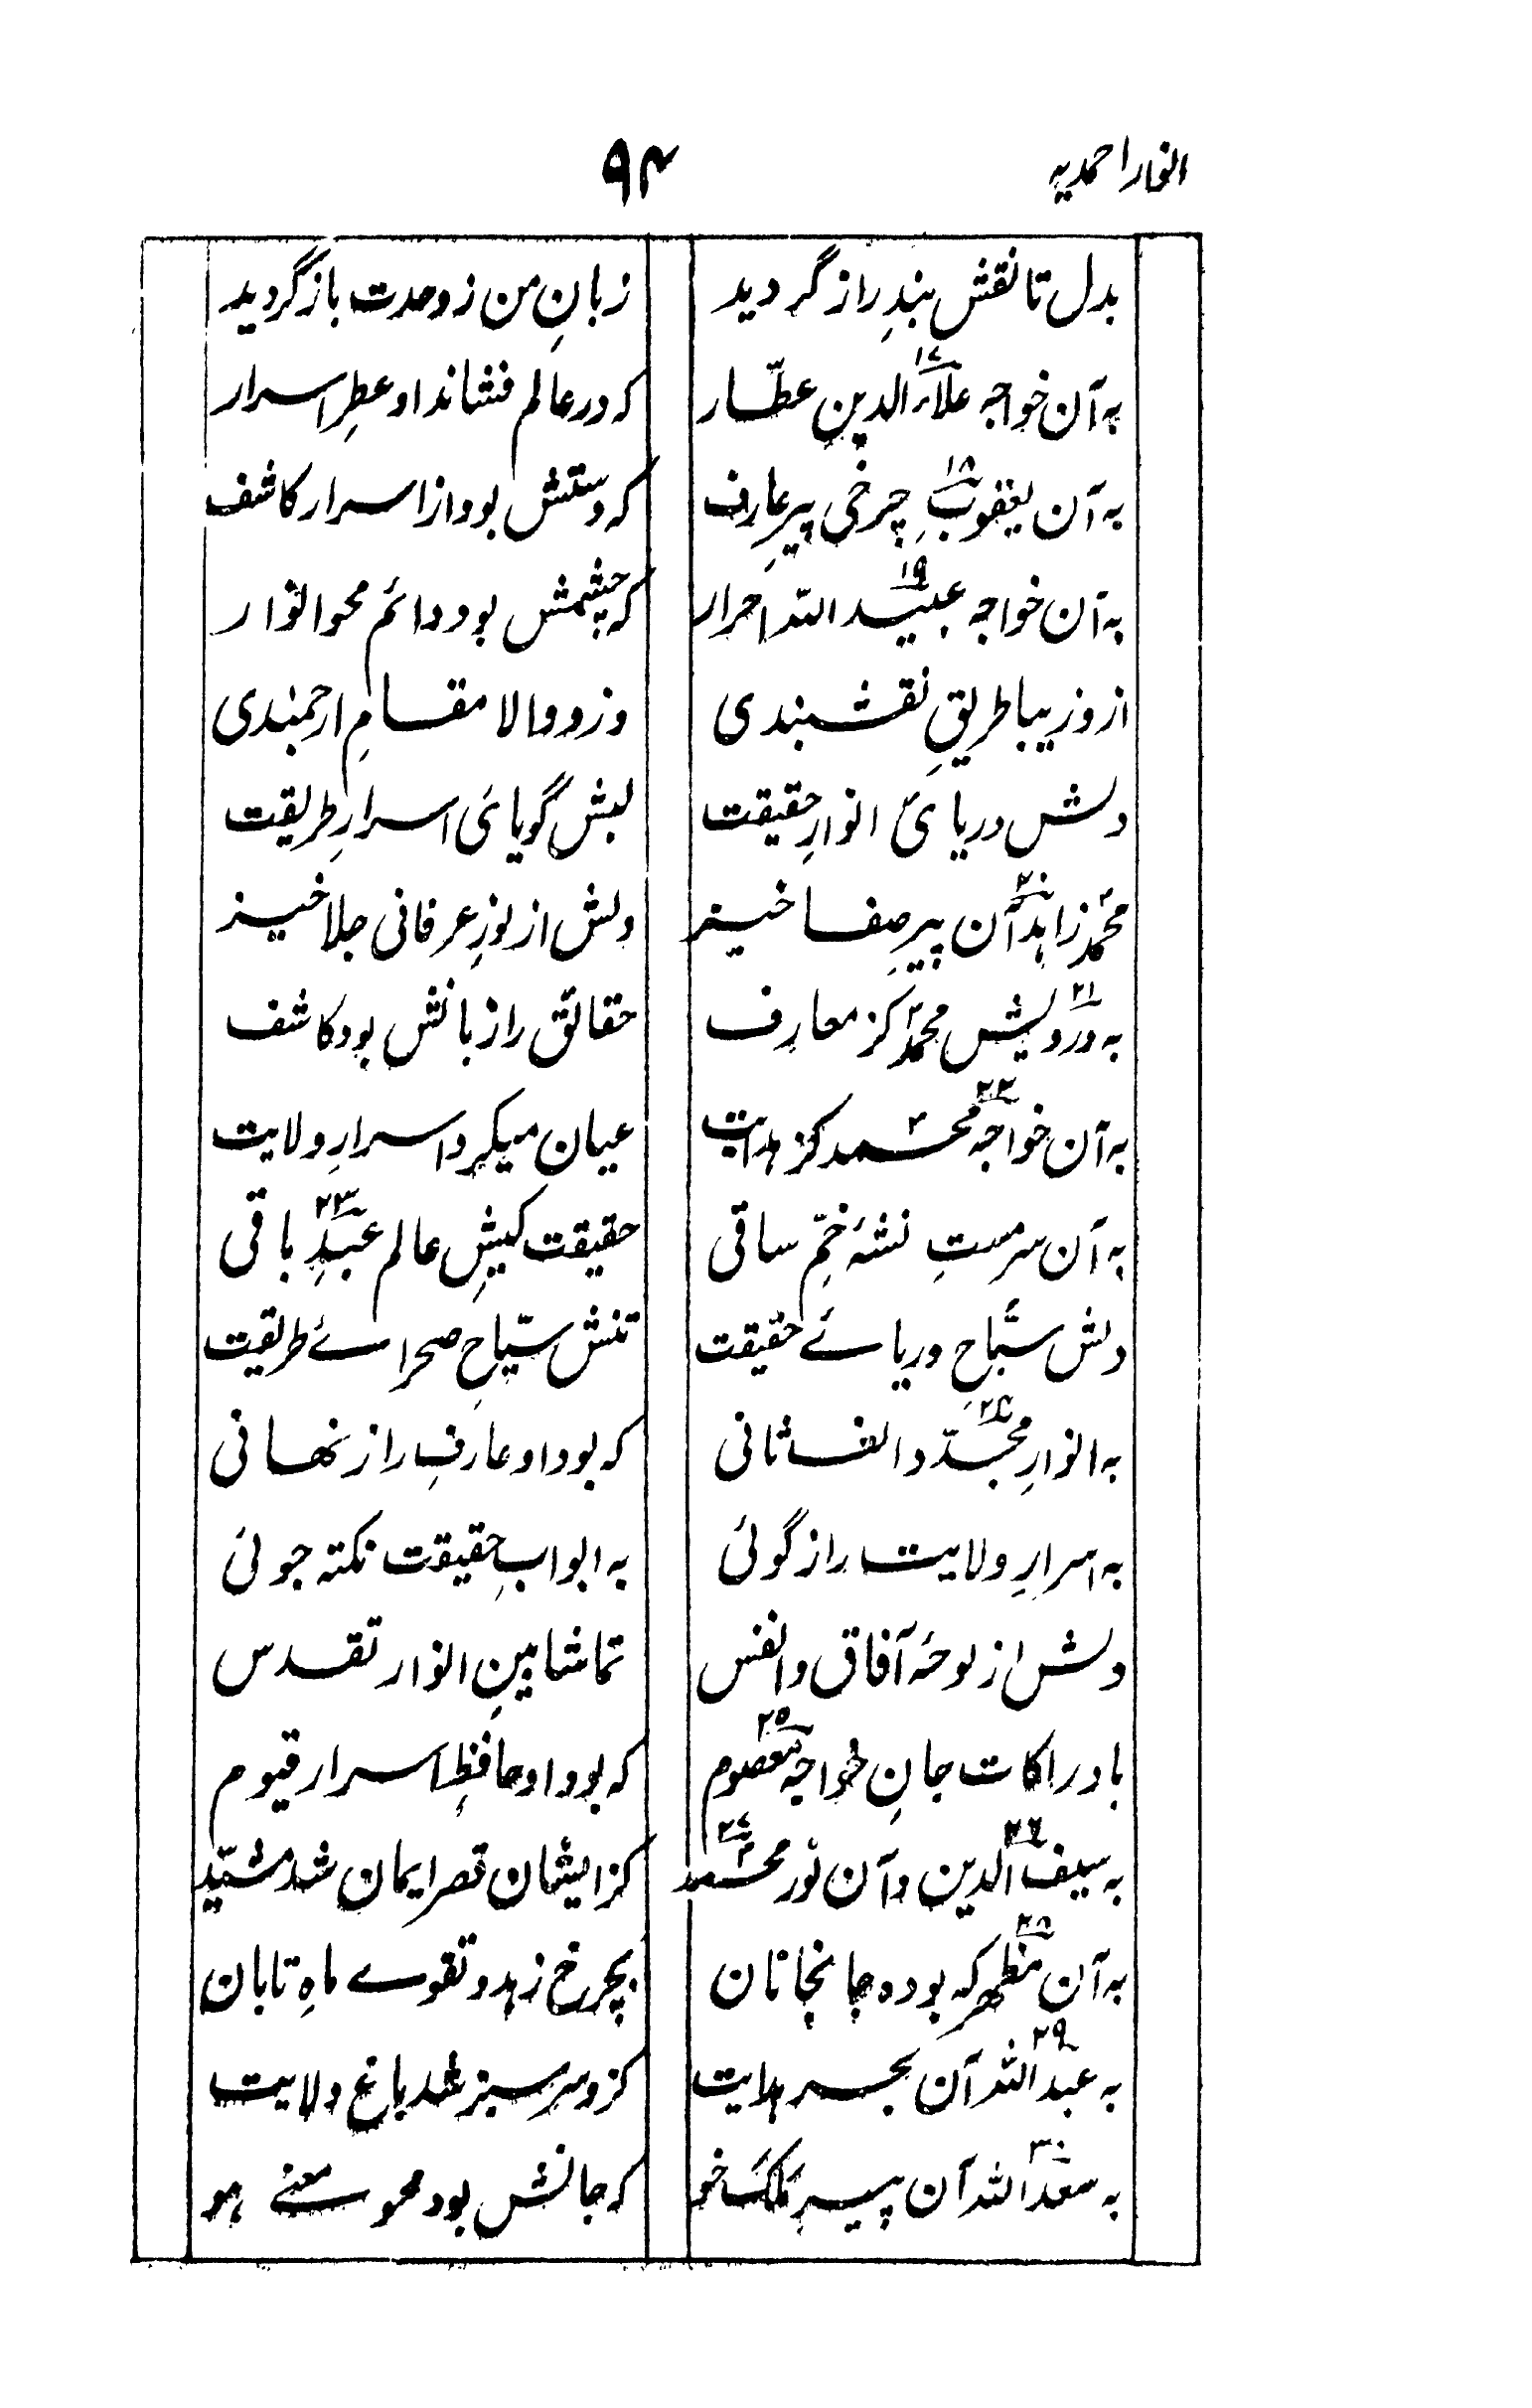 انوار احمدیہ ۹۴
بدل تا نقش بندِ راز گردید زبانِ من ز وحدت باز گردید
بہ آن خواجہ علاؤ الدین عطّار ۱۷ کہ در عالم فشاند او عطرِ اسرار
بہ آن یعقوبِ چرخی پیرِ عارف ۱۸ کہ دستش بود از اسرار کاشف
بہ آن خواجہ عبید اللہ احرار ۱۹ کہ چشمش بود دائم محو انوار
ازو زیبا طریقِ نقشبندی وزو والا مقامِ ارجمندی
دلش دریائ انوارِ حقیقت لبش گویائ اسرارِ طریقت
محمد زاہد آن پیرِ صفا خیز ۲۰ دلش از نورِ عرفانی جلا خیز
بہ درویش محمد کز معارف ۲۱ حقائق را زبانش بود کاشف
بہ آن خواجہ محمد کز ہدایت ۲۲ عیان میکرد اسرارِ ولایت
بہ آن سرمستِ نشۂ خمِّ ساقی حقیقت کیشِ عالم عبدِ باقی ۲۳
دلش سبّاحِ دریائے حقیقت تنش سیّاحِ صحرائے طریقت
بہ انوارِ مجدّد الف ثانی ۲۴ کہ بود او عارفِ راز نہانی
بہ اسرارِ ولایت راز گوئی بہ ابوابِ حقیقت نکتہ جوئی
دلش از لوحۂ آفاق و انفس تماشا بینِ انوار تقدس
بادراکات جانِ خواجہ معصوم ۲۵ کہ بود او حافظِ اسرار قیوم
بہ سیف الدین و آن نور محمد ۲۶ ۲۷ کز ایشان قصر ایمان شد مشیّد
بہ آن مظہر کہ بودہ جانجانان ۲۸ بچرخ زہد و تقوے ماہِ تابان
بہ عبد اللہ آن بحر ہدایت ۲۹ کزو سرسبز شد باغ ولایت
بہ سعد اللہ آن پیرِ ملک خو ۳۰ کہ جانش بود محو معنے ہو